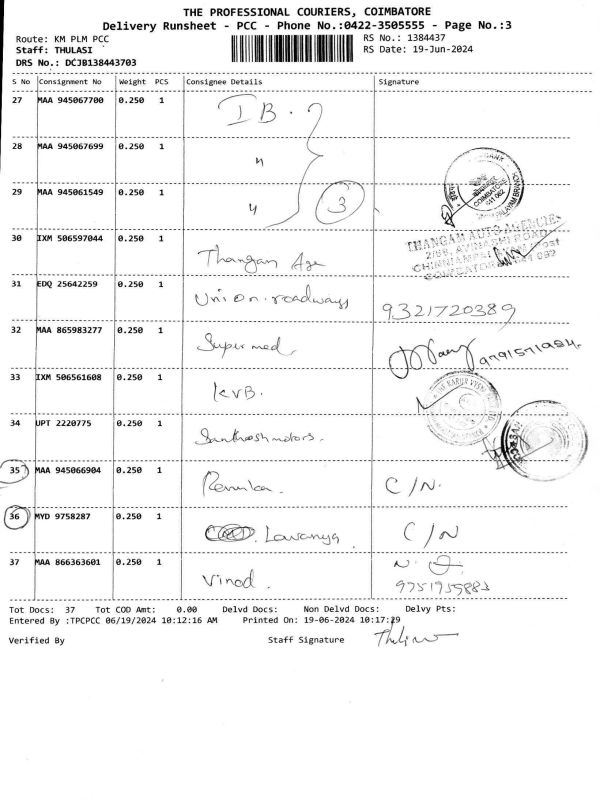 THE PROFESSIONAL COURIERS, COIMBATORE
Delivery Runsheet - PCC - Phone No.:0422-3505555 - Page No.:3
Route: KM PLM PCC
RS No.: 1384437
Staff: THULASI
RS Date: 19-Jun-2024
DRS No.: DCJB138443703
S No Consignment No Weight PCS Consignee Details Signature
27 MAA 945067700 0.250 1 IB.
28 MAA 945067699 0.250 1 "
29 MAA 945061549 0.250 1 " 3
30 IXM 506597044 0.250 1 Thangam Age
THANGAM AUTO AGENCIES
31 EDQ 25642259 0.250 1 Union roadways 9321720389
32 MAA 865983277 0.250 1 Supermed 9791571984
33 IXM 506561608 0.250 1 KVB.
34 UPT 2220775 0.250 1 Santhosh motors.
35 MAA 945066904 0.250 1 Renuka. C/N.
36 MYD 9758287 0.250 1 Lavanya. C/N
37 MAA 866363601 0.250 1 Vinod.
Tot Docs: 37 Tot COD Amt: 0.00 Delvd Docs: Non Delvd Docs: Delvy Pts:
Entered By :TPCPCC 06/19/2024 10:12:16 AM Printed On: 19-06-2024 10:17:29
Verified By Staff Signature